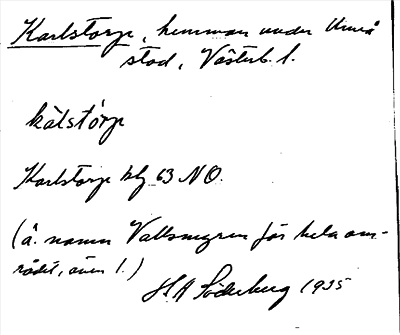 Karlstorp, hemman under Umeå
stad, Västerb. l.
kälstórp
Karlstorp blz 63 NO.
(ä. namn Vallsmyren för hela om-
rådet, även l.)
H A Söderberg 1935